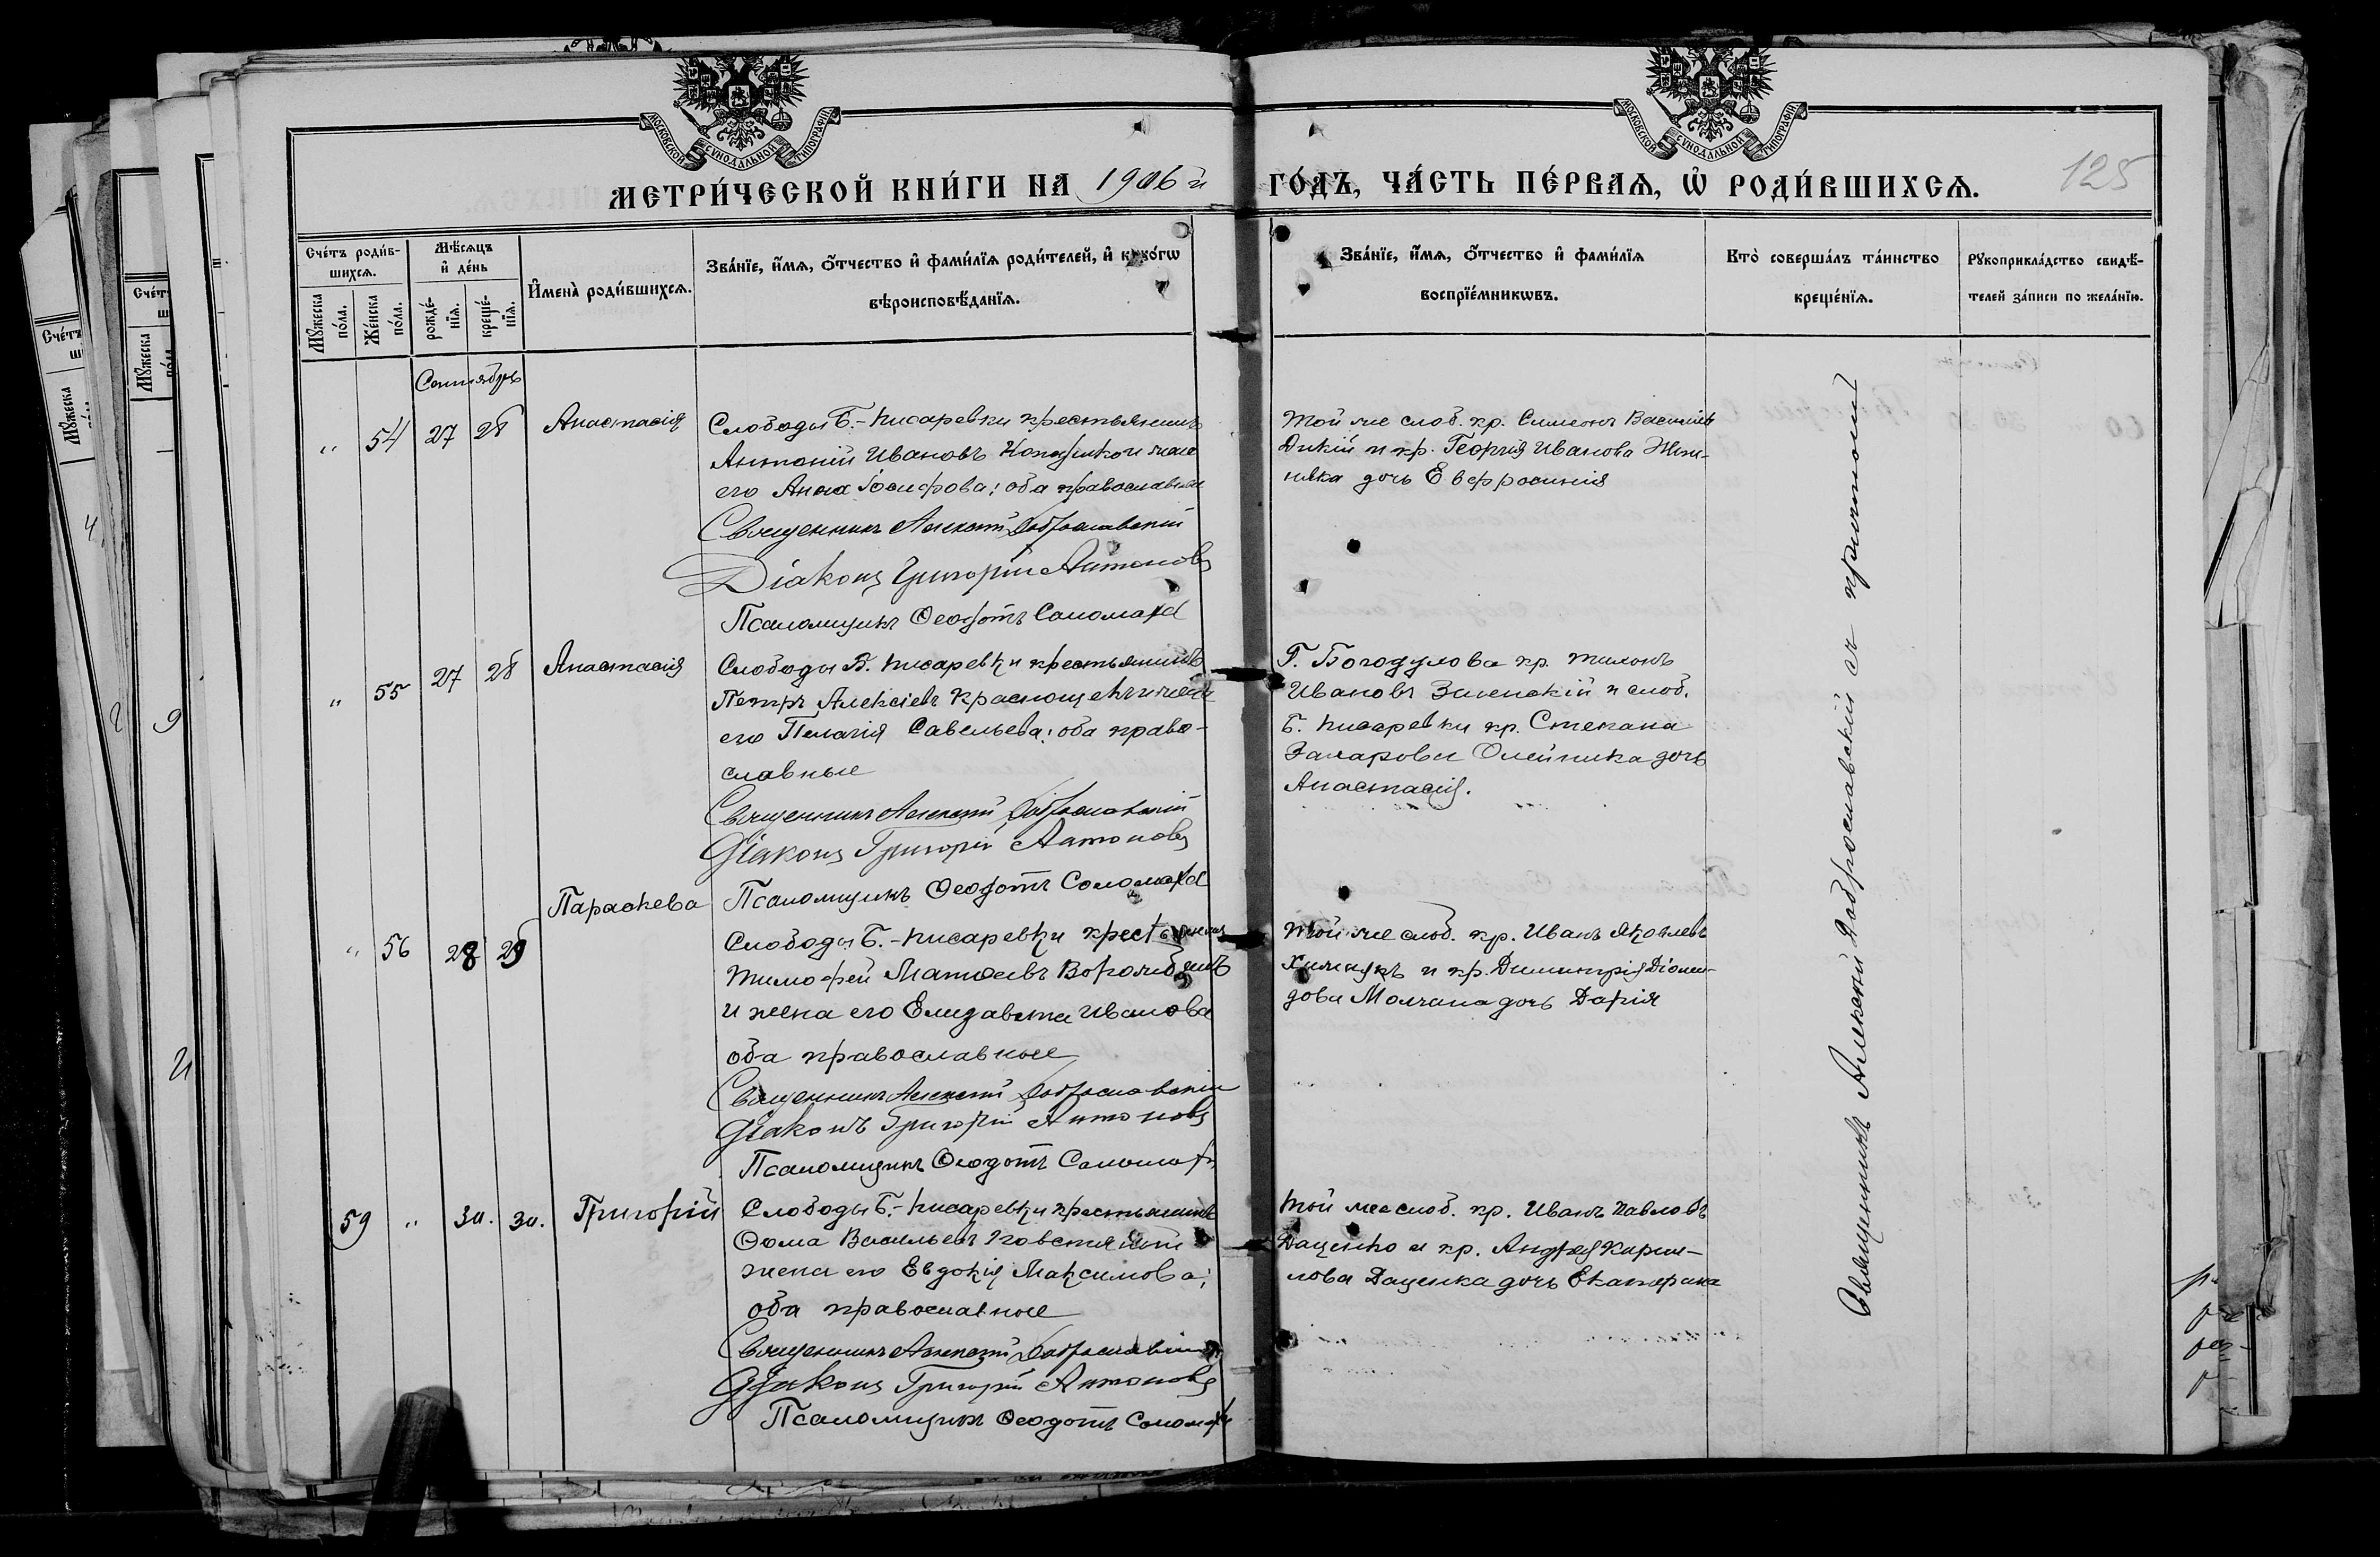 МОСКОВСКОЙ СѴНОДАЛЬНОЙ ТИПОГРАФІИ
МОСКОВСКОЙ СѴНОДАЛЬНОЙ ТИПОГРАФІИ
МЕТРИ́ЧЕСКОЙ КНИ́ГИ НА 1906 й ГО́ДЪ, ЧА́СТЬ ПЕ́РВАѦ, Ѡ҆ РОДИ́ВШИХСѦ.
125
Сче́тъ роди́в-
шихсѧ.
Мꙋ́жеска по́ла.
Же́нска по́ла.
Мѣ́сѧцъ и҆ де́нь
рожде́-нїѧ.
креще́-нїѧ.
И҆мена̀ роди́вшихсѧ.
Зва́нїе, и҆́мѧ, ѻ҆́тчество и҆ фами́лїѧ роди́телей, и҆ како́гѡ
вѣроисповѣ́данїѧ.
Зва́нїе, и҆́мѧ, ѻ҆́тчество и҆ фами́лїѧ
воспрїе́мникѡвъ.
Кто̀ соверша́лъ та́инство
креще́нїѧ.
Рꙋкоприкла́дство свидѣ́-
телей за́писи по жела́нїю.
Сентябрь
" 54 27 28 Анастасія
Слободы Б.-Писаревки крестьянинъ
Антоній Ивановъ и жена
его Анна Іосифова; оба православные
Священникъ Алексій Доброславскій
Діаконъ Григорій Антоновъ
Псаломщикъ Ѳеодотъ Соломаха
Той же слоб. кр. Симеонъ Васильевъ
Дикій и кр. Георгія Иванова
дочь Евфросинія
" 55 27 28 Анастасія
Слободы Б. Писаревки крестьянинъ
Петръ Алексіевъ Краснощекъ и жена
его Пелагія Савельева; оба право-
славные
Священникъ Алексій Доброславскій
Діаконъ Григорій Антоновъ
Псаломщикъ Ѳеодотъ Соломаха
Г. Богодухова кр. Тихонъ
Ивановъ Зиленскій и слоб.
Б. Писаревки кр. Стефана
Захарова Олейника дочь
Анастасія.
" 56 28 29 Параскева
Слободы Б.-Писаревки крестьянинъ
Тимофей Матѳеевъ
и жена его Елизавета Иванова
оба православные
Священникъ Алексій Доброславскій
Діаконъ Григорій Антоновъ
Псаломщикъ Ѳеодотъ Соломаха
Той же слоб. кр. Иванъ Яковлевъ
и кр. Димитрія Діоми-
дова Молчана дочь Дарія
59 " 30. 30. Григорій
Слободы Б.-Писаревки крестьянинъ
Ѳома Васильевъ
жена его Евдокія Максимова;
оба православные
Священникъ Алексій Доброславскій
Діаконъ Григорій Антоновъ
Псаломщикъ Ѳеодотъ Соломаха
Той же слоб. кр. Иванъ Павловъ
Даценко и кр. Андрея Кирил-
лова Даценка дочь Екатерина
Священникъ Алексій Доброславскій съ причтомъ